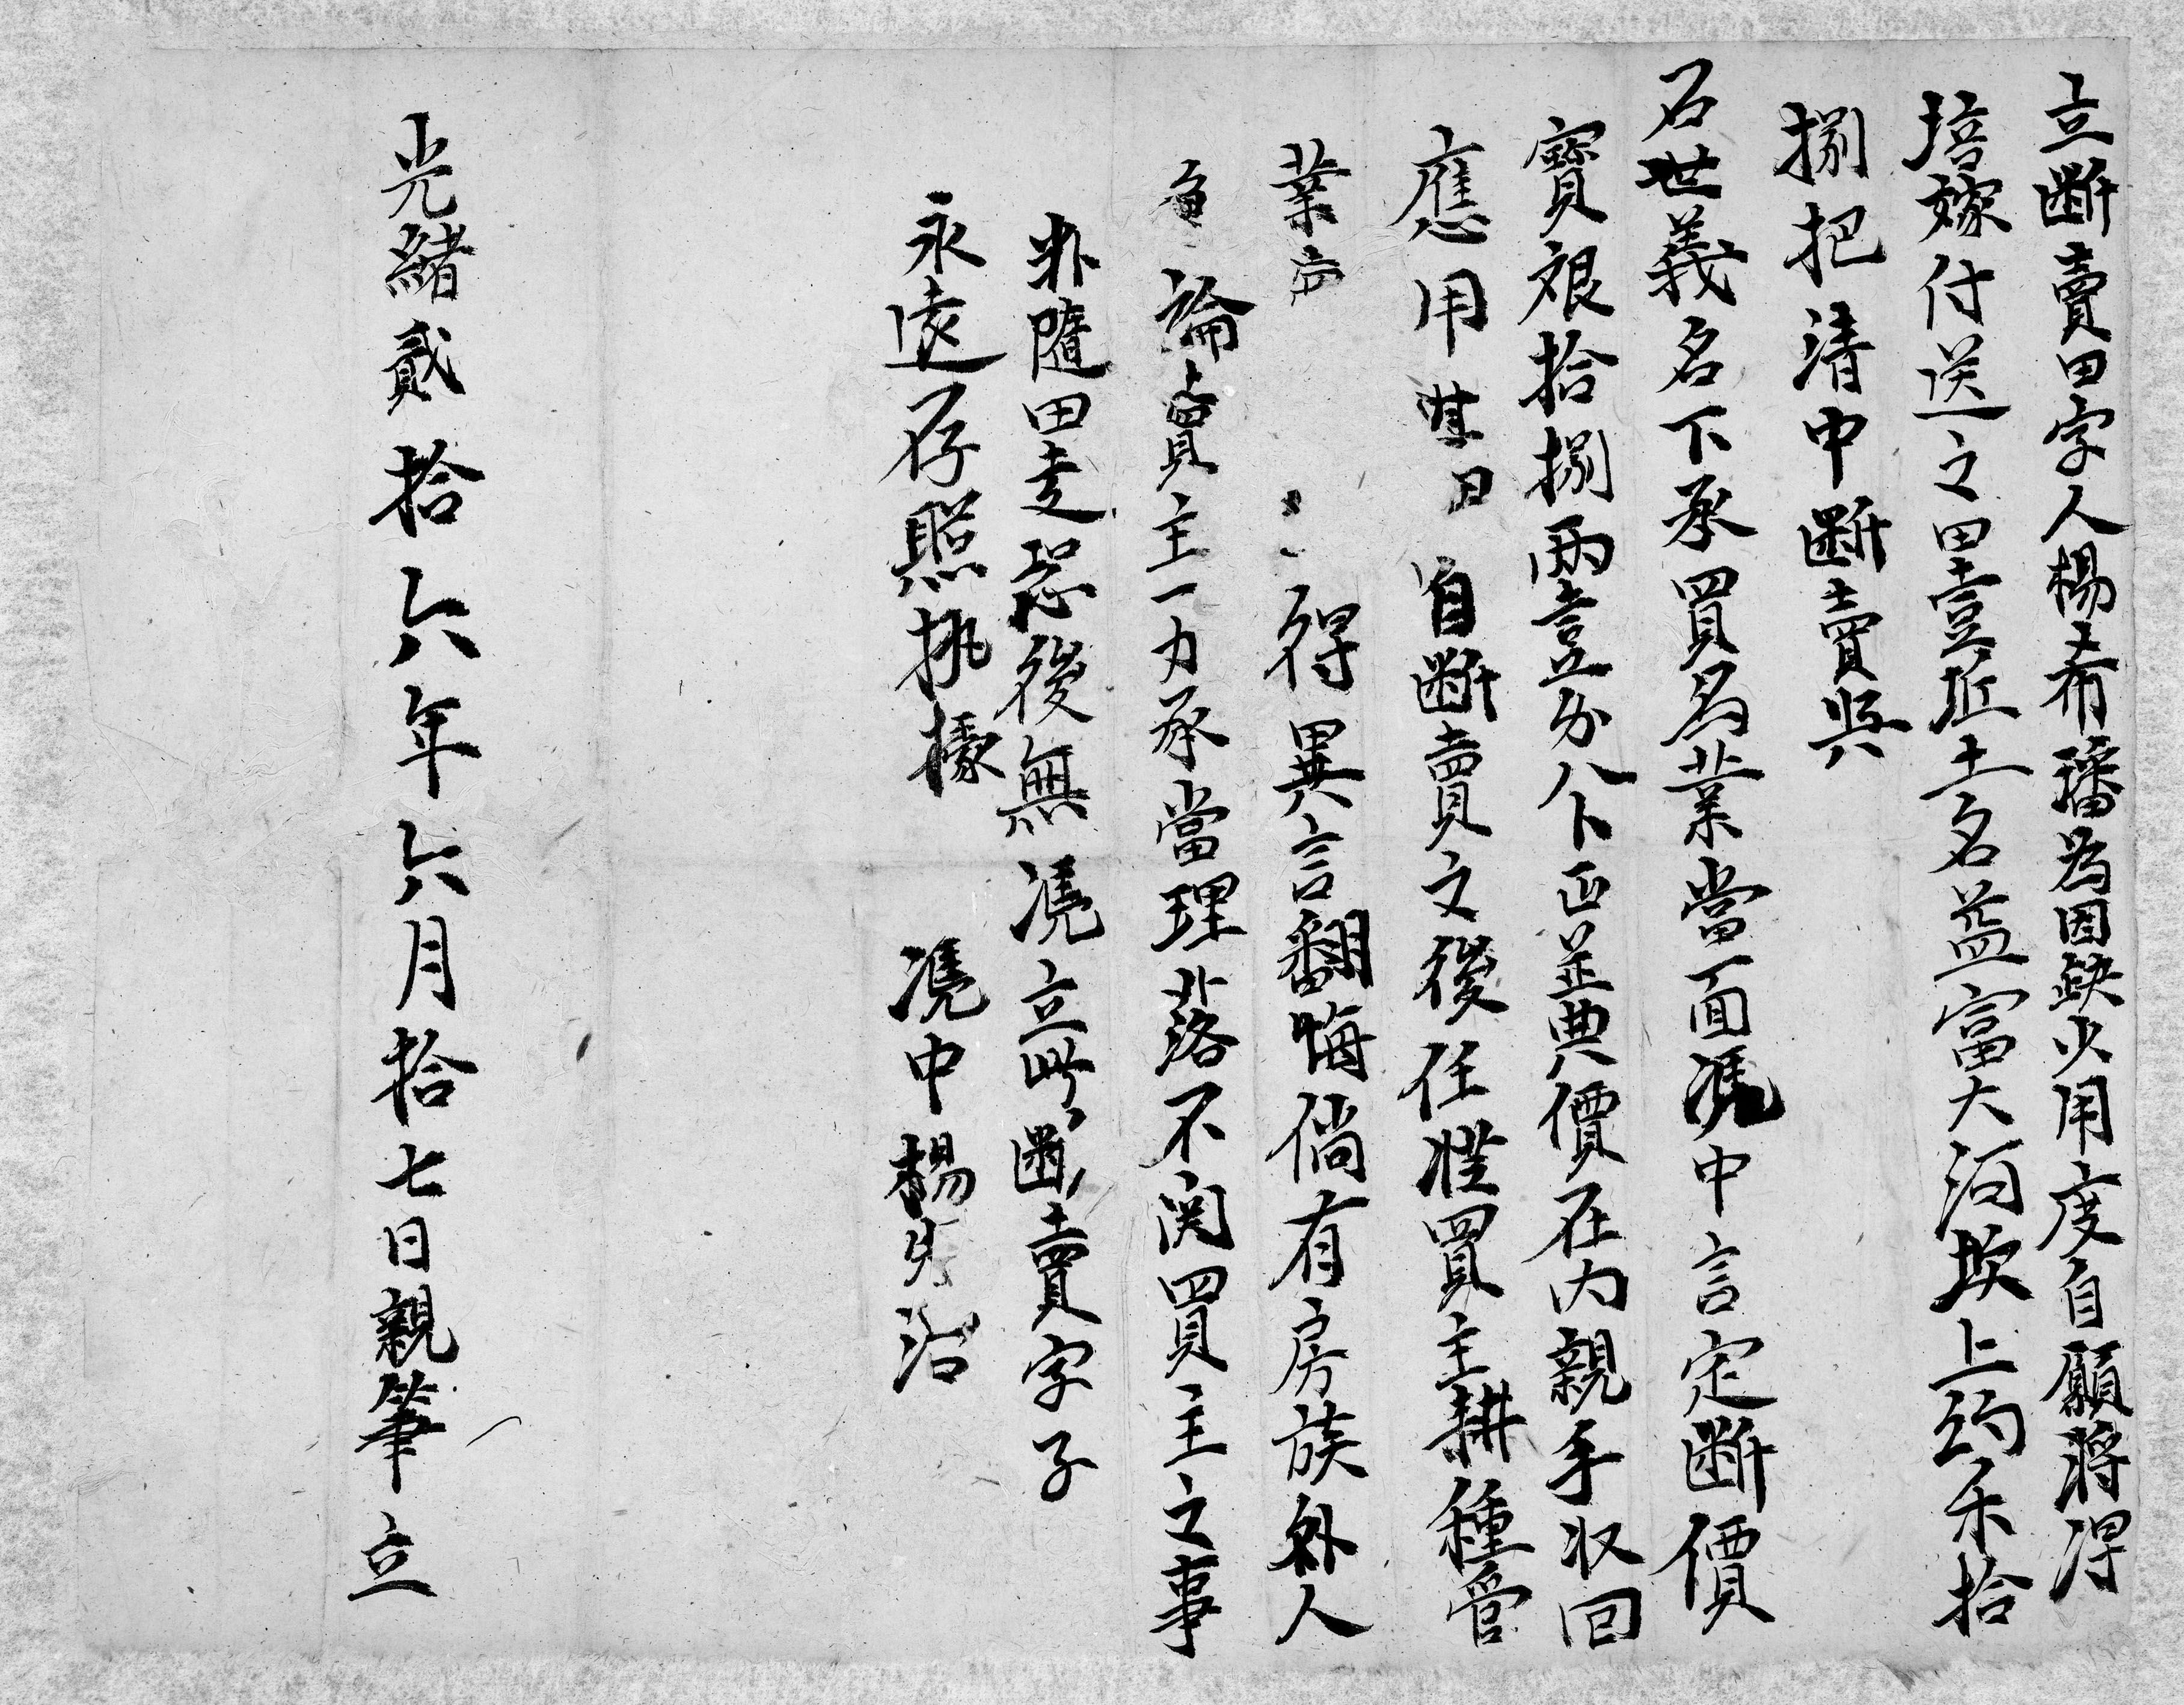 立斷賣田字人楊希璠為因缺少用度自願將得
培嫁付送之田壹坵土名益富大河坎上約禾拾
捌把請中斷賣與
石世義名下承買為業當面憑中言定斷價
寶艮拾捌兩壹分八卜正並典價在內親手收回
應用 其日 自斷賣之後任從買主耕種管
業 得異言翻悔倘有房族外人
論賣主一力承當理落不関買主之事
粮隨田走恐後無憑立此斷賣字子
永遠存照执據 憑中楊 治
光緒貳拾六年六月拾七日親筆立